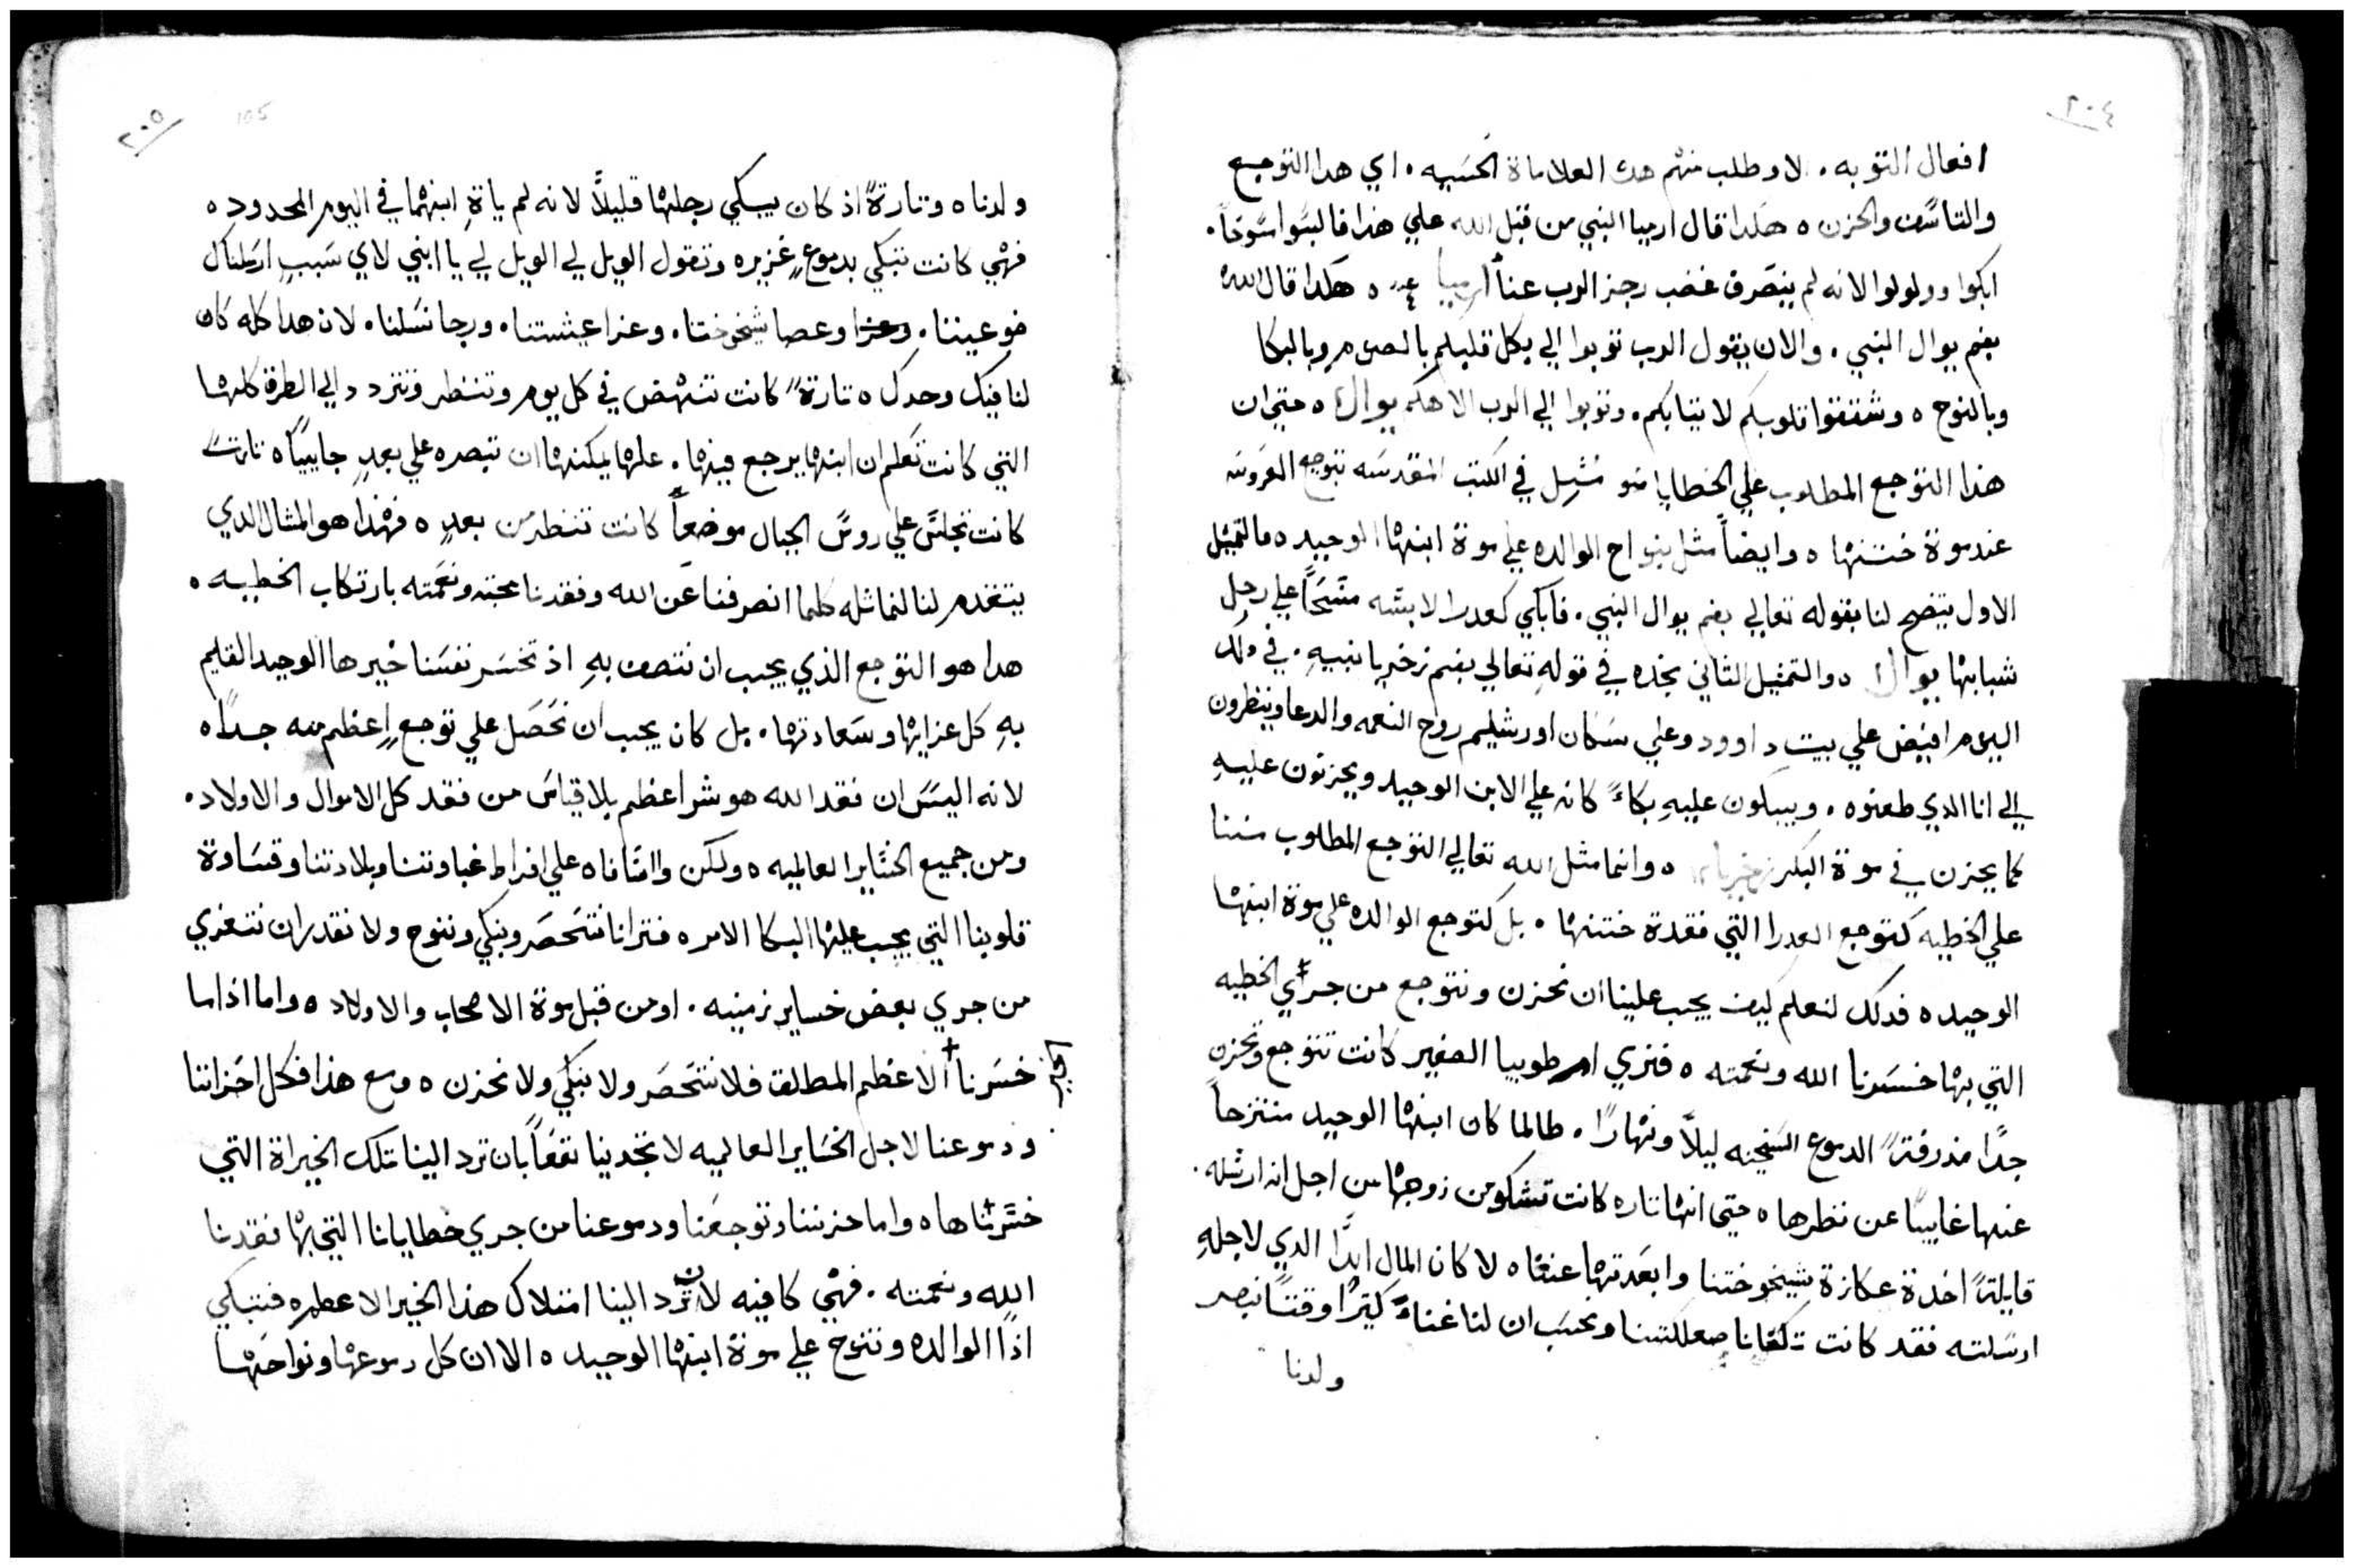 ٢٠٤
افعال التوبه . لاوطلب منهم هده العلاماة الحسَيه . اي هدا التوجع
والتاسّف والحزن ه هكدا قال ارميا النبي من قبل الله علي هذا فالبسَوا سُوخاً .
ابكوا وولولوا لانه لم ينصَرف غضب رجز الرب عنا ارميا ٤ ه هكدا قال الله
بفم يوال النبي . والان يقول الرب توبوا الي بكل قلبكم بالصوم وبالبكا
وبالنوح ه وشققوا قلوبكم لا تيابكم . وتوبوا الي الرب الاهكم يوال ه حتي ان
هذا التوجع المطلوب علي الخطايا مُثِل في الكتب المقدسَه بتوجع العَروسَه
عند موة ختنها ه وايضاً مثل بنواح الوالده علي موة ابنها الوحيد ه فالتمثيل
الاول يتضح لنا بقوله تعالي بفم يوال النبي . فابكي كعدرا لابسَه مسَحاً علي رجل
شبابها يوال ا ه والتمثيل الثاني نجده في قولهِ تعالي بفم زخريا نبيهِ . في دلك
اليوم افيض علي بيت داوود وعلي سَكان اورشليم روح النعمه والدعا وينظرون
الي انا الدي طعنوه . ويبكون عليهِ بكاءً كانه علي الابن الوحيد ويحزنون عليهِ
كما يحزن في موة البكر زخريا ه وانما مثل الله تعالي التوجع المطلوب مننا
علي الخطيه كتوجع العدرا التي فقدة ختنها . بل كتوجع الوالده علي موة ابنها
الوحيد ه فدلك لنعلم كيف يجب علينا ان نحزن ونتوجع من جراي الخطيه
التي بها خسَرنا الله ونعمته ه فنري ام طوبيا الصغير كانت تتوجع وتحزن
جدًا مذرفةً الدموع السَخينه ليلاً ونهارًا . طالما كان ابنها الوحيد منتزحاً
عنها غايباً عن نظرها ه حتي انها تاره كانت تشكو من زوجها من اجل انه ارسَله .
قايلةً اخدة عكازة شيخوختنا وابعَدتها عنا ه لا كان المال ابدًا الدي لاجلهِ
ارسَلته فقد كانت تكفانا صعلكتنا ونحسَب ان لنا غناءً كتيرًا وقتاً نبصر
ولدنا
٢٠٥
105
ولدنا ه وتارةً اذ كان يبكي رجلها قليلاً لانه لم ياةِ ابنهما في اليوم المحدود ه
فهي كانت تبكي بدموعٍ غزيره وتقول الويل لي الويل لي يا ابني لاي سَببٍ ارسَلناك
ضو عيننا . وعزا وعصا شيخوختنا . وعزا عيشتنا . ورجا نسَلنا . لان هدا كله كان
لنا فيك وحدك ه تارةً كانت تنهض في كل يوم وتنظر وتتردد الي الطرق كلها
التي كانت تعلم ان ابنها يرجع فيها . علها يمكنها ان تبصره علي بعدٍ جايياً ه تارةً
كانت تجلسَ علي روسَ الجبال موضعاً كانت تنظر من بعدٍ ه فهذا هو المثال الدي
يتقدم لنا لنماثله كلما انصرفنا عَن الله وفقدنا محبته ونعمَته بارتكاب الخطيه ه
هدا هو التوجع الذي يجب ان نتصف بهِ اذ تخسَر نفسَنا خيرها الوحيد القايم
بهِ كل عزايها وسَعادتها . بل كان يجب ان نحَصَل علي توجعٍ اعظم منه جدًا ه
لانه اليسَ ان فقد الله هو شر اعظم بلا قياسَ من فقد كل الاموال والاولاد .
ومن جميع الخسَاير العالميه ه ولكن واسَفاه علي افراط غباوتنا وبلادتنا وقسَاوة
قلوبنا التي يجب عليها البكا الامر ه فترانا نتحَصَر ونبكي وننوح ولا نقدر ان نتعزي
من جري بعض خساير زمنيه . او من قبل موة الاصحاب والاولاد ه واما اذا ما
خسَرنا + الاعظم المطلق فلا نتحَصَر ولا نبكي ولا نحزن ه ومع هذا فكل احَزاننا
الخير
ودموعنا لاجل الخسَاير العالميه لا تجدينا نفعَاً بان ترد الينا تلك الخيراة التي
خسَرناها ه واما حزننا وتوجعَنا ودموعنا من جري خطايانا التي بها فقدنا
الله ونعمته . فهي كافيه لان ترد الينا امتلاك هذا الخير الاعظم ه فتبكي
اذًا الوالده وتنوح علي موة ابنها الوحيد ه الا ان كل دموعها ونواحَها